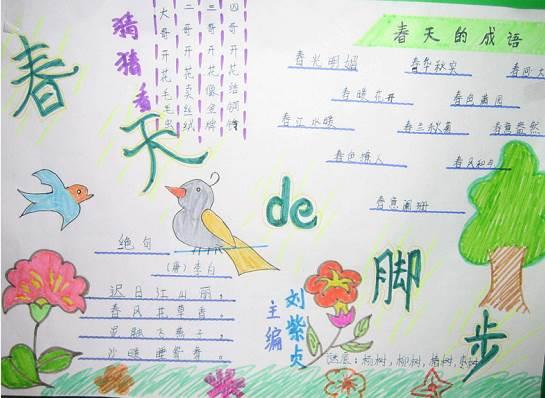 春天de脚步
猜猜看
大哥开花毛毛虫
二哥开花卖丝绒
三哥开花像金牌
四哥开花结铜铃
春天的成语
春光明媚
春华秋实
春暖花开
春色满园
春江水暖
春兰秋菊
春意盎然
春色撩人
春风和气
春意阑珊
绝句
（唐）李白
迟日江山丽，
春风花草香。
泥融飞燕子，
沙暖睡鸳鸯。
主编
刘紫贞
谜底：杨树，柳树，椿树，枣树